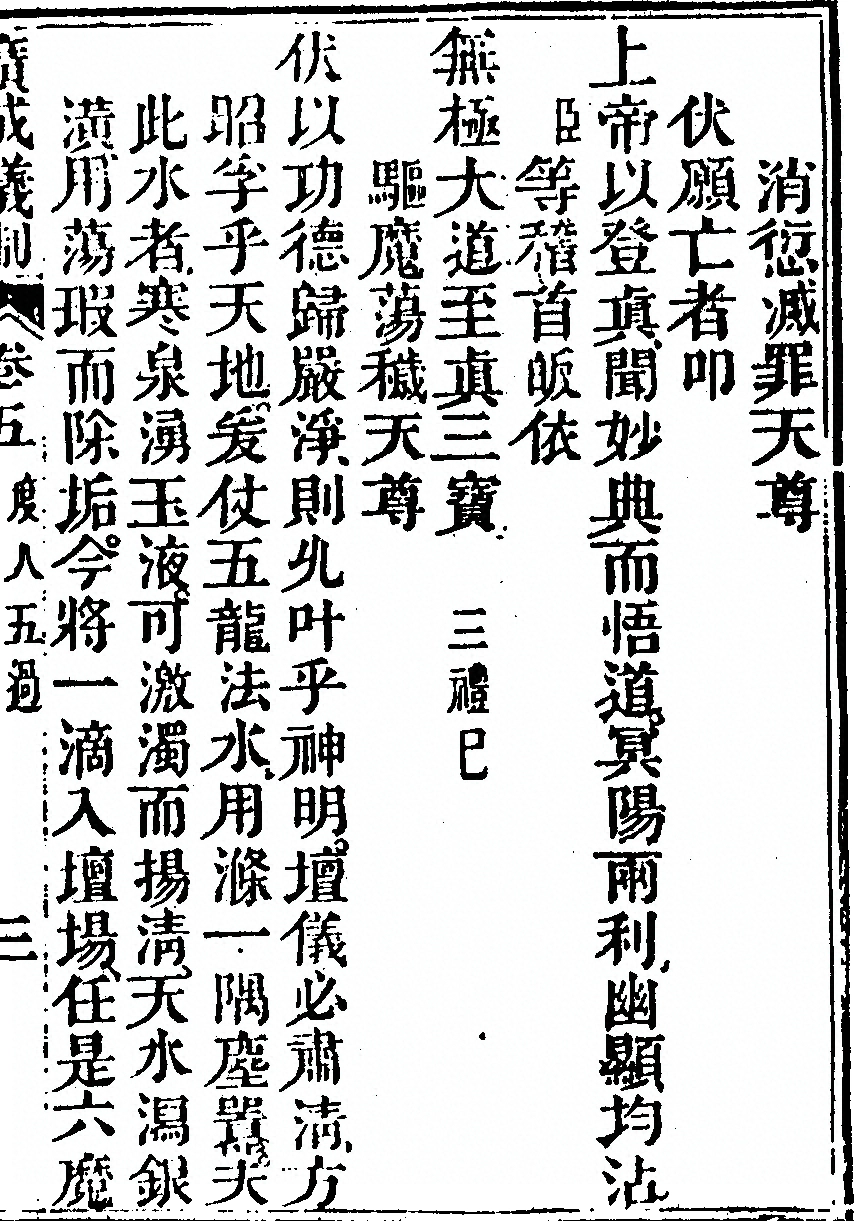 消愆滅罪天尊
伏願亡者叩
上帝以登眞聞妙典而悟道冥陽兩利幽顯均沾
臣等稽首皈依
無極大道至眞三寶 三禮已
驅魔蕩穢天尊
伏以功德歸嚴淨則允叶乎神明壇儀必肅清方
昭孚乎天地爰仗五龍法水用滌一隅塵囂夫
此水者寒泉湧玉液可激濁而揚清天水瀉銀
潢用蕩瑕而除垢今將一滴入壇場任是六魔
廣成儀制 卷五 度人五過 三